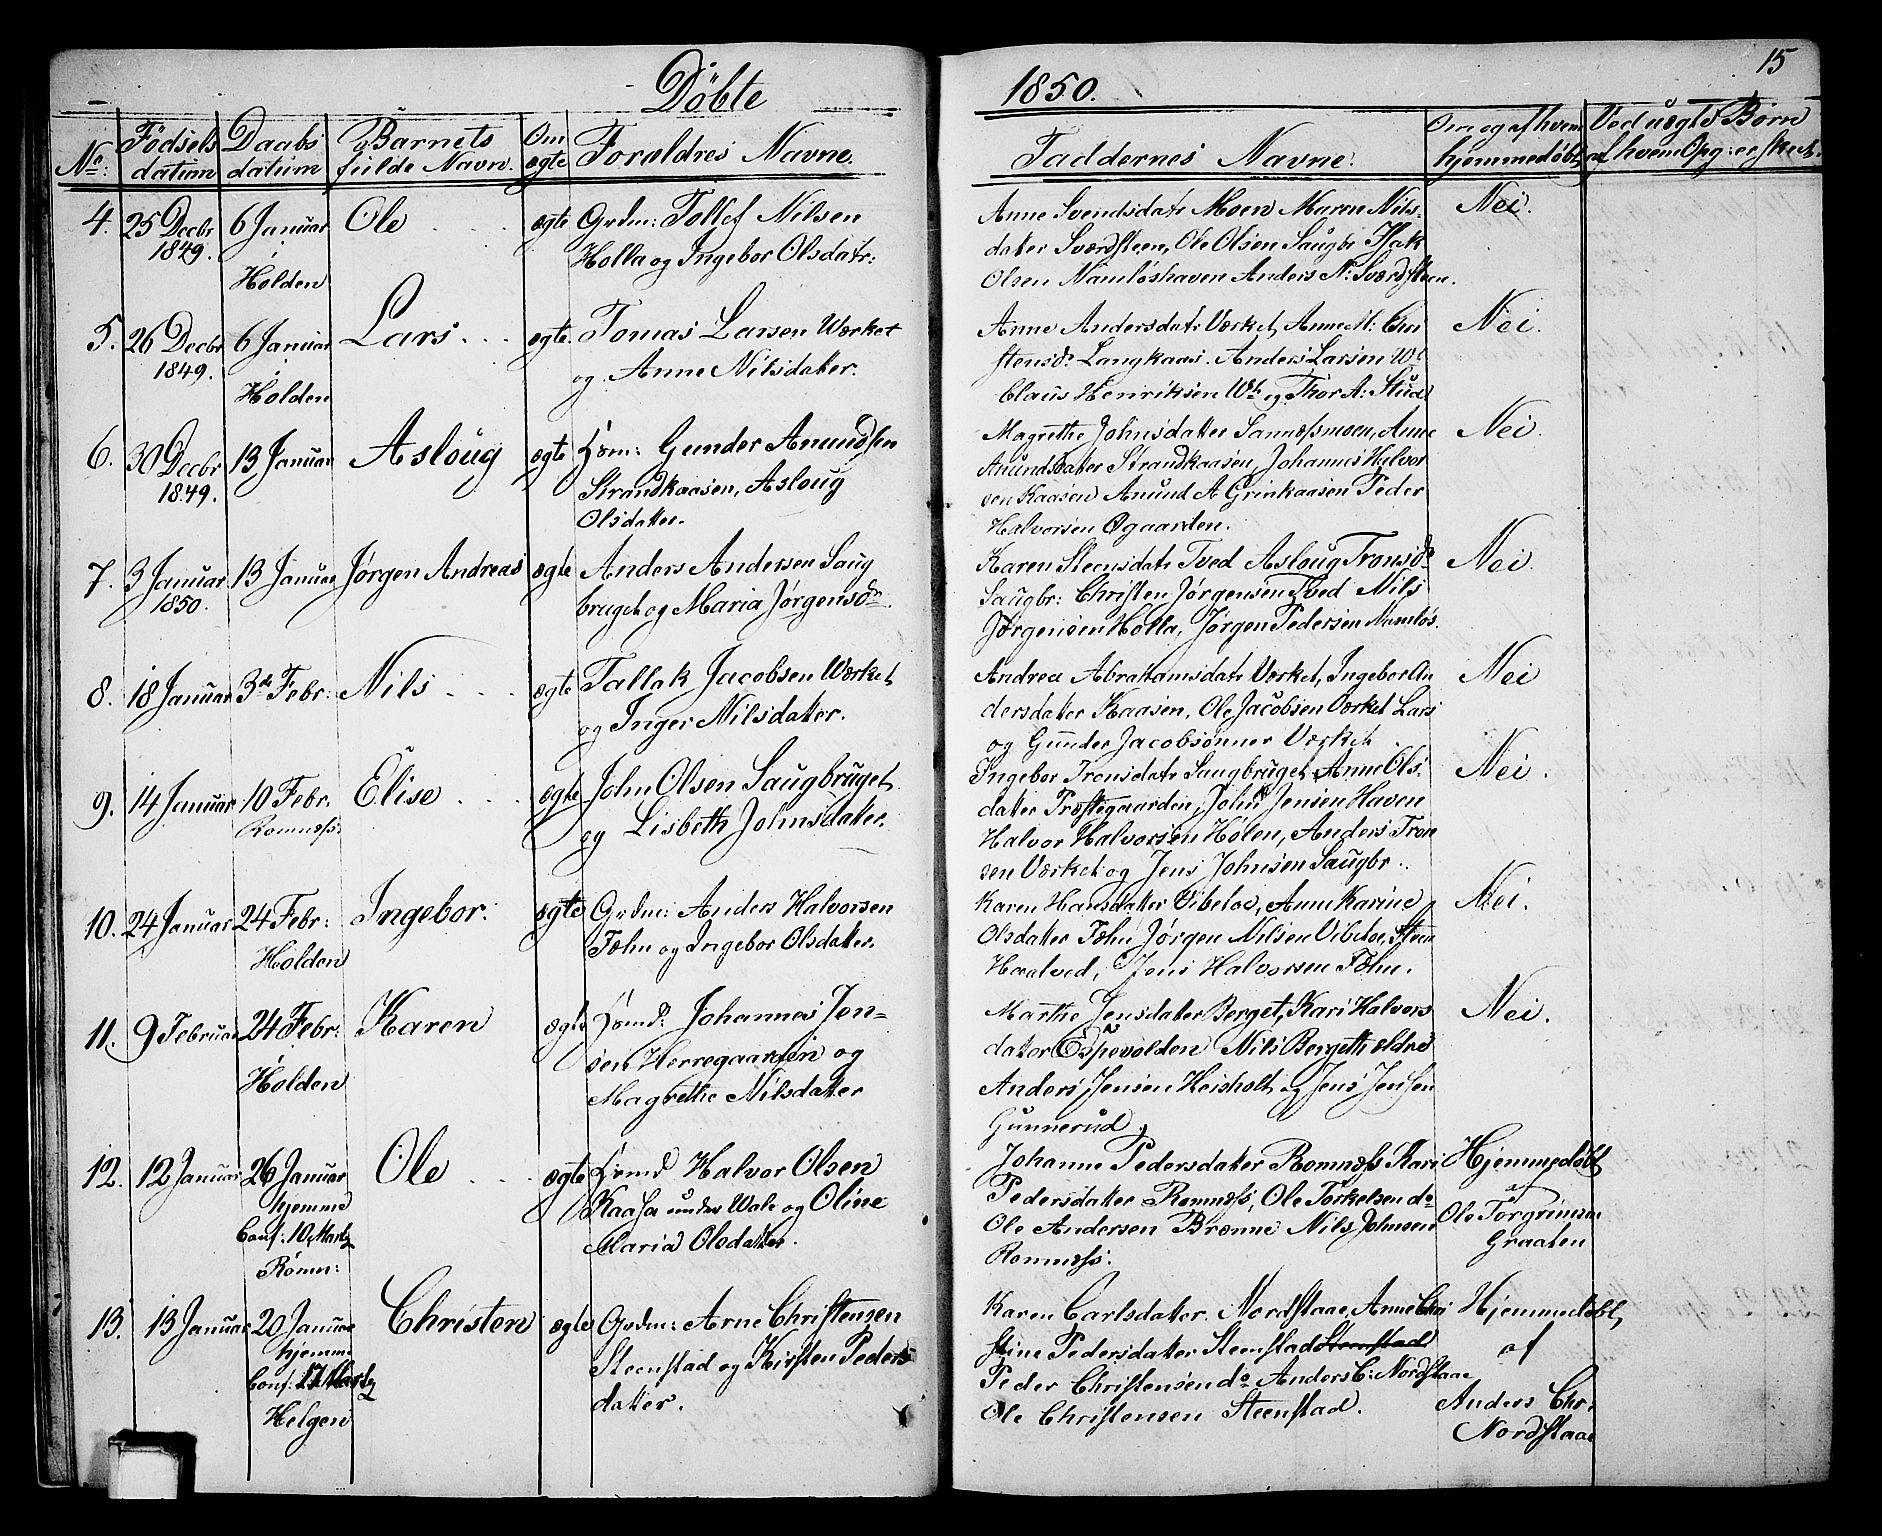 Döbte 1850. 15
No: Födsels datum Daabs datum Barnets fulde Navn. Om ægte Forældres Navne. Faddernes Navne. Om og af hvem hjemmedöbt Ved uægte Børn af hvem Opg: er skeet.
4. 25 Decbr 1849. 6 Januar Holden Ole ægte
Grdm: Tollef Nilsen
Holla og Ingebor Olsdatr:
Anne Svendsdatr Moen Maren Nils-
datter Sværdsteen, Ole Olsen Saugbr Isak
Olsen Namløshaven Anders N: Sværdsteen.
Nei.
5. 26 Decbr 1849. 6 Januar Holden Lars ægte.
Tomas Larsen Værket
og Anne Nilsdatter.
Anne Andersdatr Værket, Anne M:
stensdr Langkaas. Anders Larsen
Claus Henriksen og Thor A:
Nei
6. 30 Decbr 1849. 13 Januar Asloug ægte
Huusm: Gunder Anundsen
Strandkaasen, Asloug
Olsdatter.
Magrethe Johnsdatter Sannessmoen, Anne
Anundsdatter Strandkaasen, Johannes Halvor
sen Kaasen Anund A Grinkaasen Peder
Halvorsen Øgaarden.
Nei.
7. 3 Januar 1850. 13 Januar Jørgen Andreas ægte
Anders Andersen Saug
bruget og Maria Jørgensdr.
Karen Steensdatr Tved Asloug Tronsdr
Saugbr: Christen Jørgensen Tved Nils
Jørgensen Holla, Jørgen Pedersen Namløs.
Nei.
8. 18 Januar 3de Febr: Nils ægte
Tallak Jacobsen Værket
og Inger Nilsdatter.
Andrea Abrahamsdatr Værket, Ingebor An
dersdatter Kaasen, Ole Jacobsen Værket Lars
og Gunder Jacobsønner Værket.
Nei
9. 14 Januar 10 Febr. Romness. Elise ægte
John Olsen Saugbruget
og Lisbeth Johnsdatter.
Ingebor Tronsdatr Saugbruget Anne Ols-
datter Præstegaarden, John Jensen Haven
Halvor Halvorsen Holen, Anders Tron
sen Værket og Jens Johnsen Saugbr.
Nei.
10. 24 Januar 24 Febr: Holden Ingebor. ægte
Grdm: Anders Halvorsen
Fæhn og Ingebor Olsdatter.
Karen Hansdatter Vibetoe, Anne Karine
Olsdatter Fæhn Jørgen Nilsen Vibetoe, Steen
Haatved, Jens Halvorsen Fæhn.
Nei.
11. 9 Februar 24 Febr: Holden Karen ægte
Huusmd: Johannes Jen-
sen Herregaarden og
Magrethe Nilsdatter
Marthe Jensdatter Berget, Kari Halvors
datter Espevolden Nils Bergeth ældre
Anders Jensen Heisholt og Jens Jensen
Gunnerud.
Nei.
12. 12 Januar 26 Januar hjemme Conf: 10 Marts Romn: Ole ægte
Huusmd Halvor Olsen
Kaasa under Wale og Oline
Maria Olsdatter.
Johanne Pedersdatter Romness Kari
Pedersdatter Romness, Ole Torkelsen do
Ole Andersen Brenne Nils Johnsen
Romness.
Hjemmedøbt
af
Ole Torgrimsen
Graaten
13. 13 Januar 20 Januar hjemme Conf: 17 Marts Helgen Christen ægte
Grdm: Arne Christensen
Steenstad og Kirsten Peders
datter.
Karen Carlsdatter. Nordstaae, Anne Chri
stine Pedersdatter Steenstad Steenstad
Peder Christensen do Anders C: Nordstaae
Ole Christensen Steenstad.
Hjemmedøbt,
af
Anders Chr:
Nordstaae